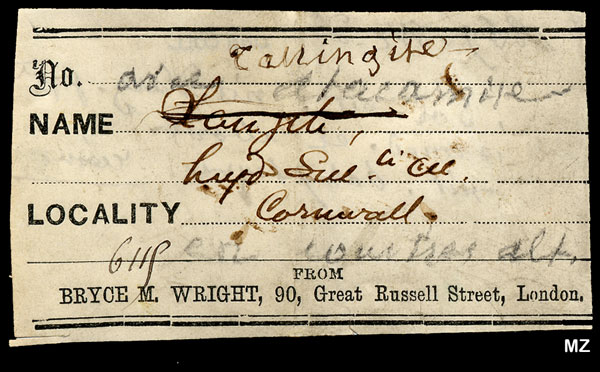 Tallingite
No. atacamite
NAME Langite,
hyd Sul. Cu.
LOCALITY Cornwall.
6118
FROM
BRYCE M. WRIGHT, 90, Great Russell Street, London.
MZ